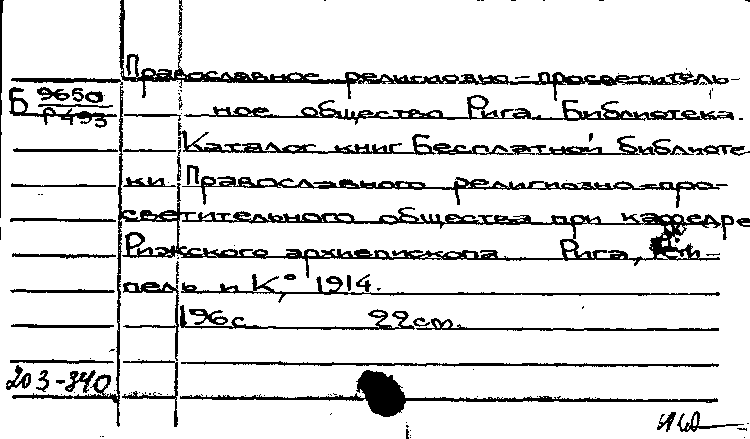 Православное религиозно-просветитель-
Б 9650
Р493
ное общество Рига. Библиотека.
Каталог книг Бесплатной библиоте
ки Православного религиозно-про-
светительного общества при кафедре
Рижского архиепископа. Рига,
пель и К,° 1914.
196с. 22cm.
203-340